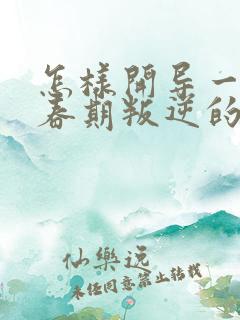 怎様開导一
春期叛逆的
仙樂説
未経同意禁止转载